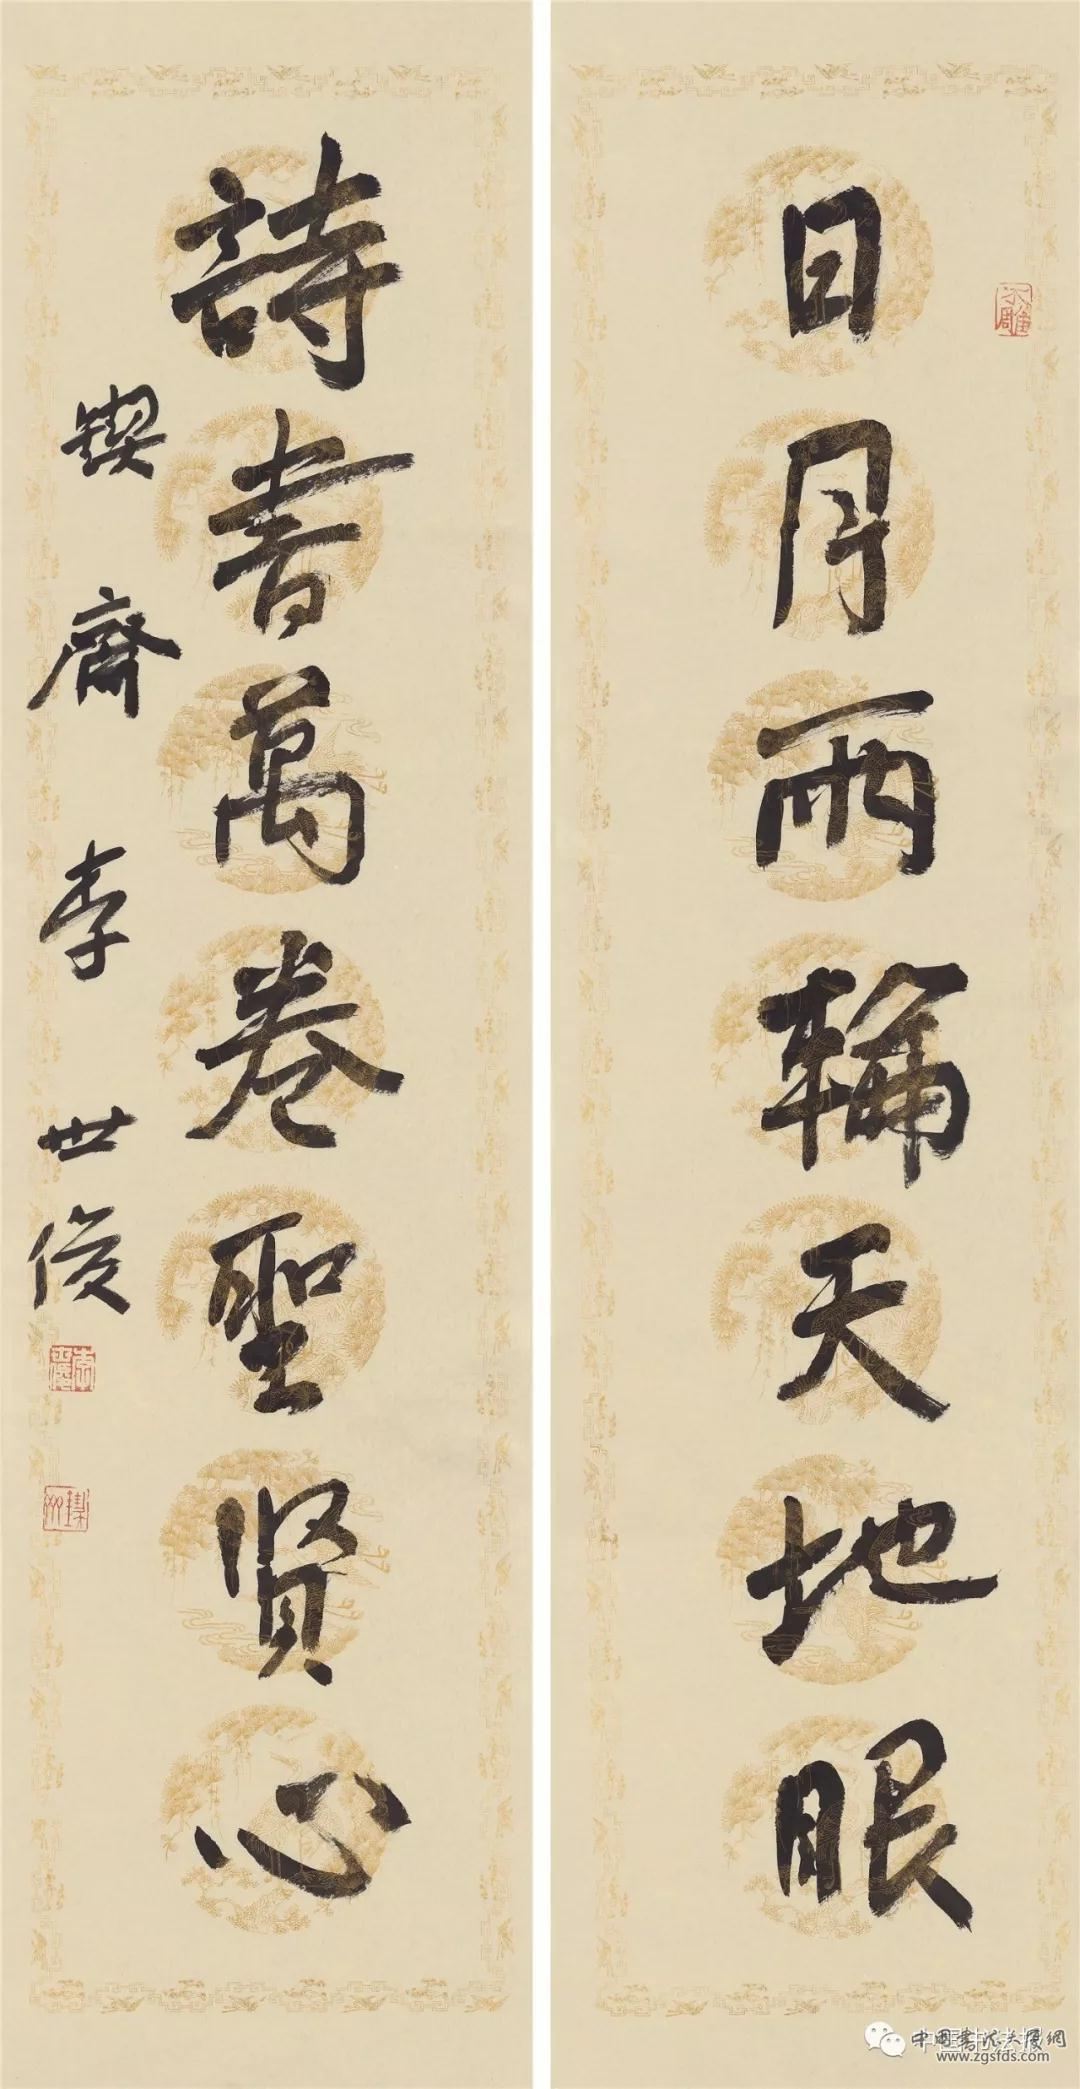 日月兩輪天地眼
詩書萬卷聖賢心
鍥齋李世俊
中国书法大厦網
www.zgsfds.com